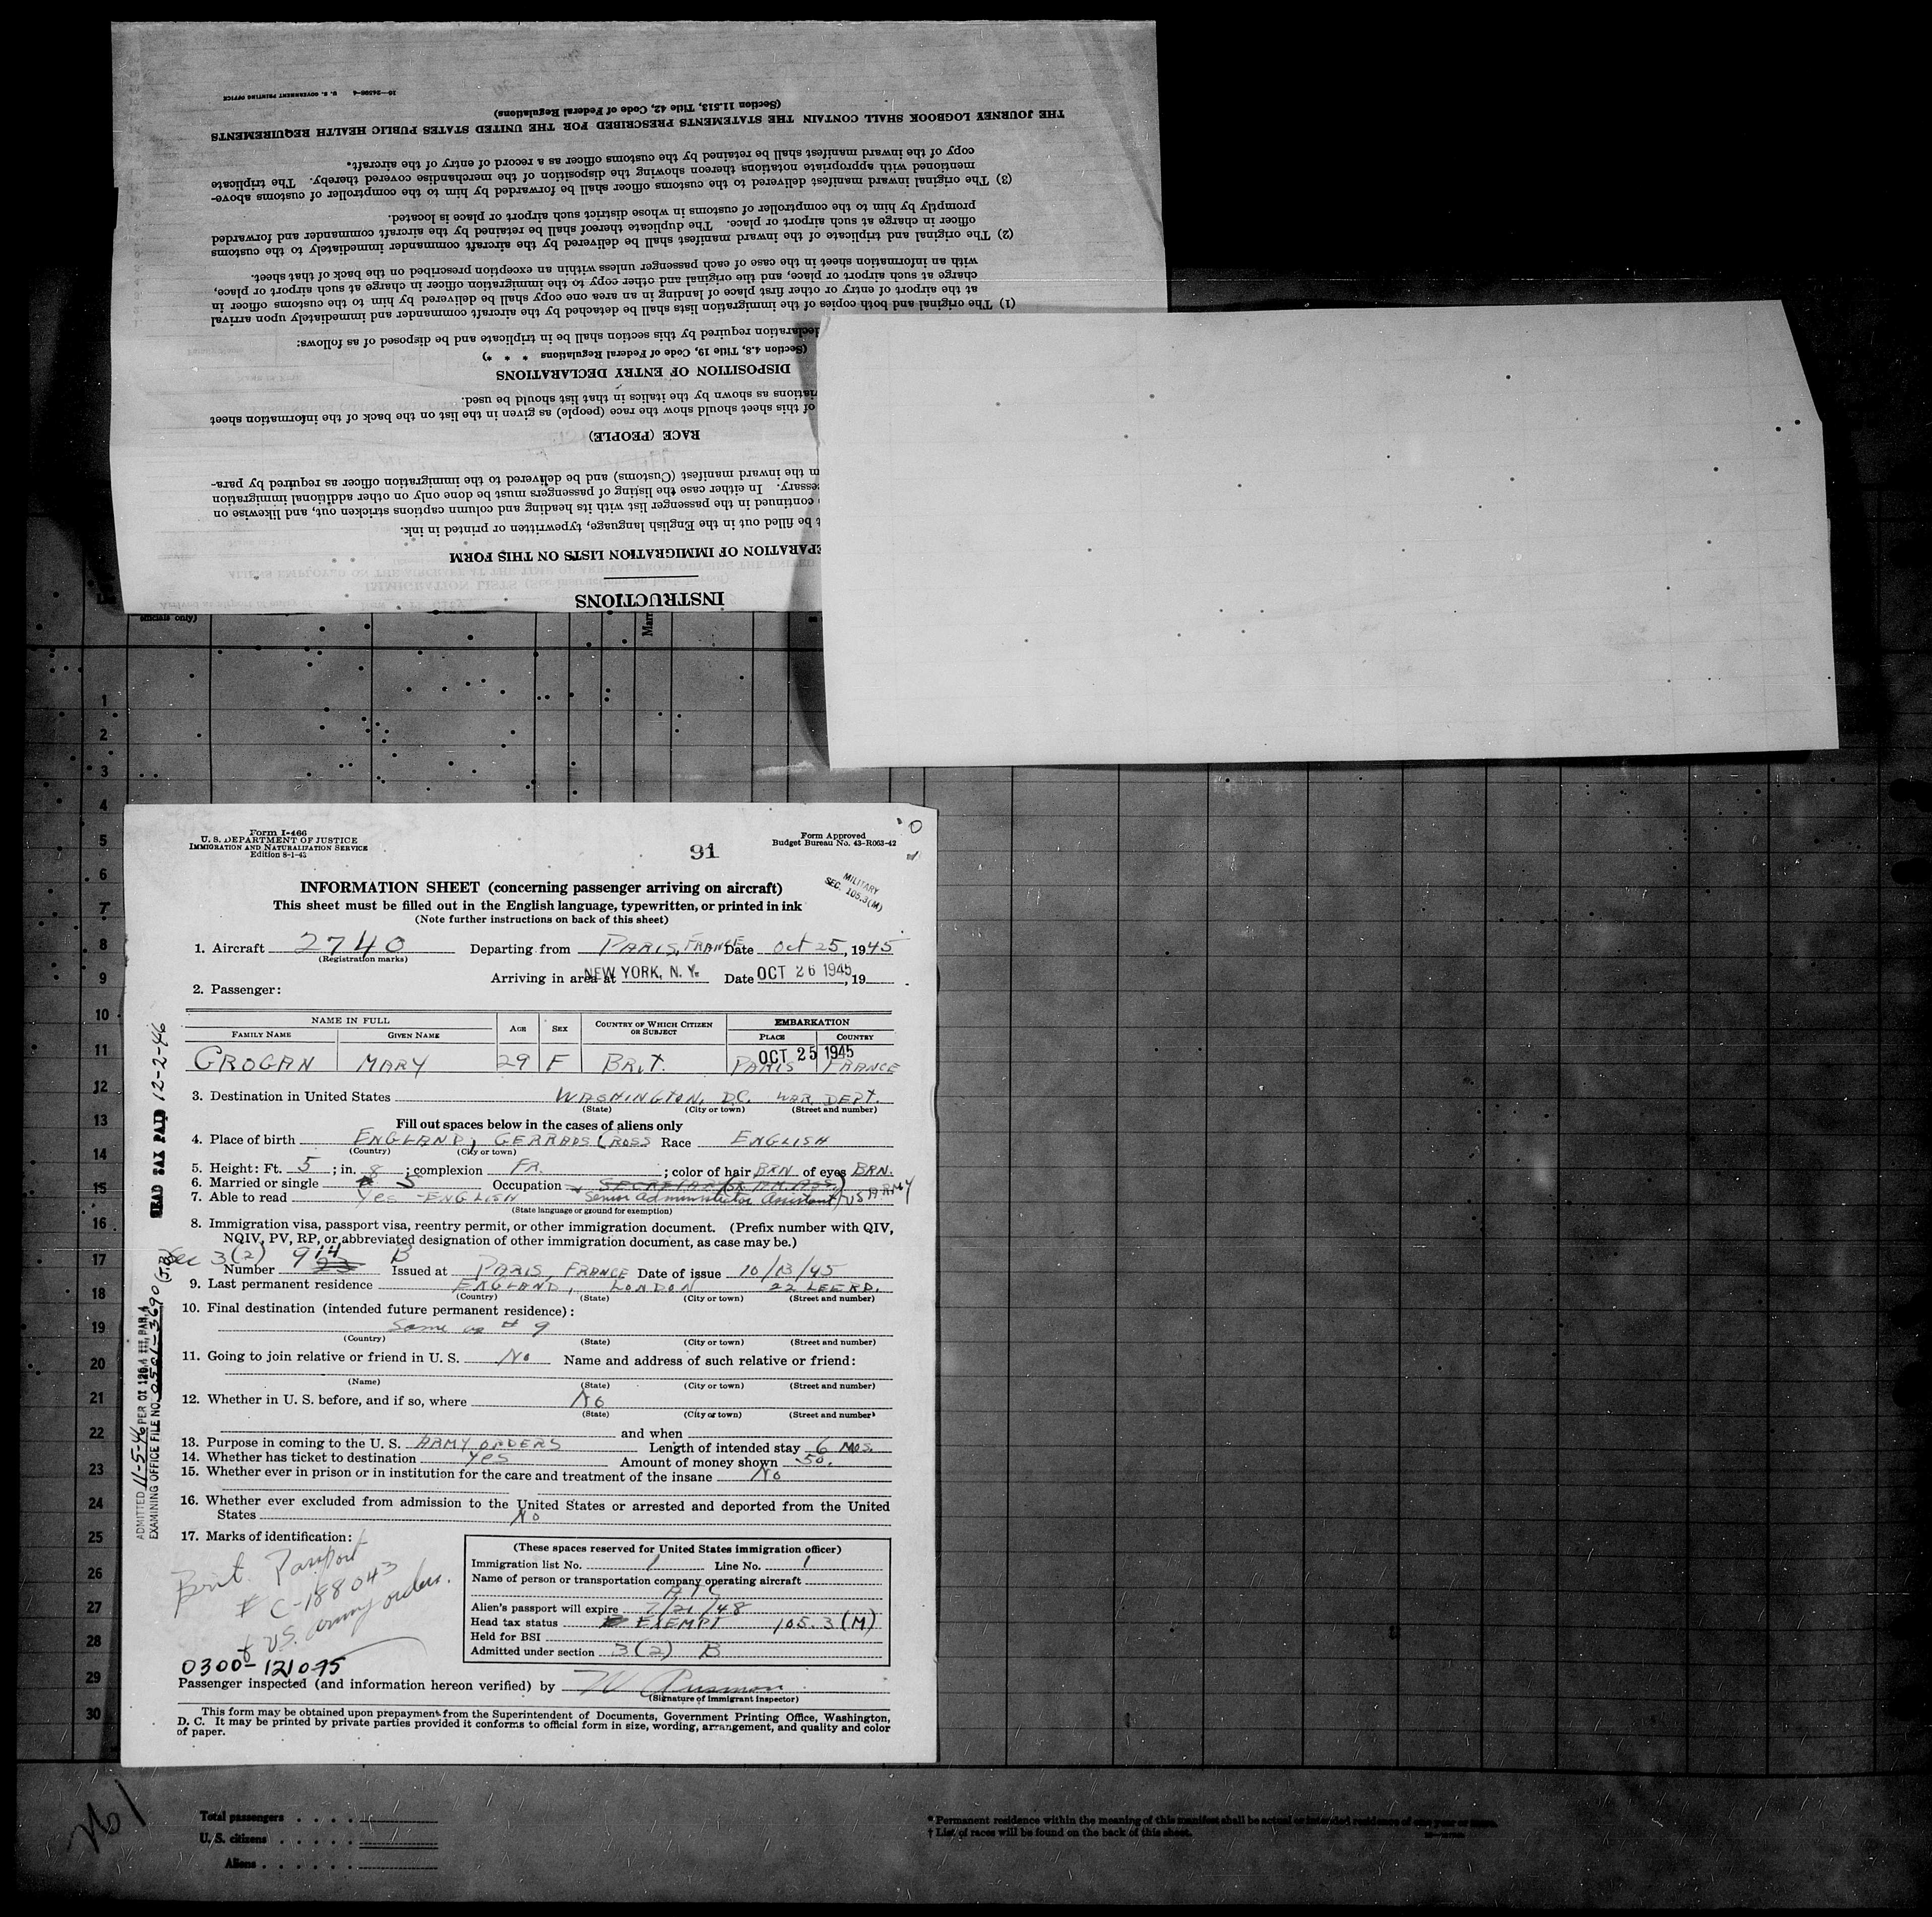 INSTRUCTIONS
EPARATION OF IMMIGRATION LISTS ON THIS FORM
t be filled out in the English language, typewritten or printed in ink.
continued in the passenger list with its heading and column captions stricken out, and likewise on
essary. In either case the listing of passengers must be done only on other additional immigration
m the inward manifest (Customs) and be delivered to the immigration officer as required by para-
RACE (PEOPLE)
of this sheet should show the race (people) as given in the list on the back of the information sheet
riations as shown by the italics in that list should be used.
DISPOSITION OF ENTRY DECLARATIONS
(Section 4.8, Title 19, Code of Federal Regulations * * *)
declaration required by this section shall be in triplicate and be disposed of as follows:
(1) The original and both copies of the immigration lists shall be detached by the aircraft commander and immediately upon arrival
at the airport of entry or other first place of landing in an area one copy shall be delivered by him to the customs officer in
charge at such airport or place, and the original and other copy to the immigration officer in charge at such airport or place,
with an information sheet in the case of each passenger unless within an exception prescribed on the back of that sheet.
(2) The original and triplicate of the inward manifest shall be delivered by the aircraft commander immediately to the customs
officer in charge at such airport or place. The duplicate thereof shall be retained by the aircraft commander and forwarded
promptly by him to the comptroller of customs in whose district such airport or place is located.
(3) The original inward manifest delivered to the customs officer shall be forwarded by him to the comptroller of customs above-
mentioned with appropriate notations thereon showing the disposition of the merchandise covered thereby. The triplicate
copy of the inward manifest shall be retained by the customs officer as a record of entry of the aircraft.
THE JOURNEY LOGBOOK SHALL CONTAIN THE STATEMENTS PRESCRIBED FOR THE UNITED STATES PUBLIC HEALTH REQUIREMENTS
(Section 11.513, Title 42, Code of Federal Regulations)
U. S. GOVERNMENT PRINTING OFFICE
officials only)
Marr
1
2
3
4
5
6
7
8
9
10
11
12
13
14
15
16
17
18
19
20
21
22
23
24
25
26
27
28
29
30
Form I-466
U. S. DEPARTMENT OF JUSTICE
IMMIGRATION AND NATURALIZATION SERVICE
Edition 8-1-43
91
Form Approved
Budget Bureau No. 43-R063-42
MILITARY
SEC. 105.3(M)
INFORMATION SHEET (concerning passenger arriving on aircraft)
This sheet must be filled out in the English language, typewritten, or printed in ink
(Note further instructions on back of this sheet)
1. Aircraft 2740 Departing from PARIS, FRANCE Date Oct 25, 1945
(Registration marks)
Arriving in area at NEW YORK, N. Y. Date OCT 26 1945, 19
2. Passenger:
NAME IN FULL AGE SEX COUNTRY OF WHICH CITIZEN OR SUBJECT EMBARKATION
FAMILY NAME GIVEN NAME PLACE COUNTRY
OCT 25 1945
GROGAN MARY 29 F BRIT. PARIS FRANCE
3. Destination in United States WASHINGTON, D.C. WAR DEPT.
(State) (City or town) (Street and number)
Fill out spaces below in the cases of aliens only
4. Place of birth ENGLAND, GERRADS CROSS Race ENGLISH
(Country) (City or town)
5. Height: Ft. 5 ; in. 8 ; complexion FR. ; color of hair BRN of eyes BRN.
6. Married or single S Occupation SECRETARY
Senior Administrator Assistant US ARMY
7. Able to read Yes - ENGLISH
(State language or ground for exemption)
8. Immigration visa, passport visa, reentry permit, or other immigration document. (Prefix number with QIV,
NQIV, PV, RP, or abbreviated designation of other immigration document, as case may be.)
Sec 3(2) 914 B
Number 23 Issued at PARIS, FRANCE Date of issue 10/13/45
9. Last permanent residence ENGLAND, LONDON 22 LEE RD.
(Country) (State) (City or town) (Street and number)
10. Final destination (intended future permanent residence):
Same as # 9
(Country) (State) (City or town) (Street and number)
11. Going to join relative or friend in U. S. No Name and address of such relative or friend:
(Name) (State) (City or town) (Street and number)
12. Whether in U. S. before, and if so, where No
(State) (City or town) (Street and number)
and when
13. Purpose in coming to the U. S. ARMY ORDERS Length of intended stay 6 MOS.
14. Whether has ticket to destination Yes Amount of money shown 50.
15. Whether ever in prison or in institution for the care and treatment of the insane No
16. Whether ever excluded from admission to the United States or arrested and deported from the United
States No
17. Marks of identification:
Brit. Passport
# C-188043
& U.S. Army orders.
0300-121075
(These spaces reserved for United States immigration officer)
Immigration list No. 1 Line No. 1
Name of person or transportation company operating aircraft
ATC
Alien's passport will expire 7/21/48
Head tax status EXEMPT 105.3(M)
Held for BSI
Admitted under section 3(2) B
Passenger inspected (and information hereon verified) by
(Signature of immigrant inspector)
This form may be obtained upon prepayment from the Superintendent of Documents, Government Printing Office, Washington,
D. C. It may be printed by private parties provided it conforms to official form in size, wording, arrangement, and quality and color
of paper.
HEAD TAX PAID 12-2-46
ADMITTED 11-5-46 PER OI
EXAMINING OFFICE FILE NO.
Total passengers
U. S. citizens
Aliens
* Permanent residence within the meaning of this manifest shall be actual or intended residence of one year or more.
† List of races will be found on the back of this sheet.